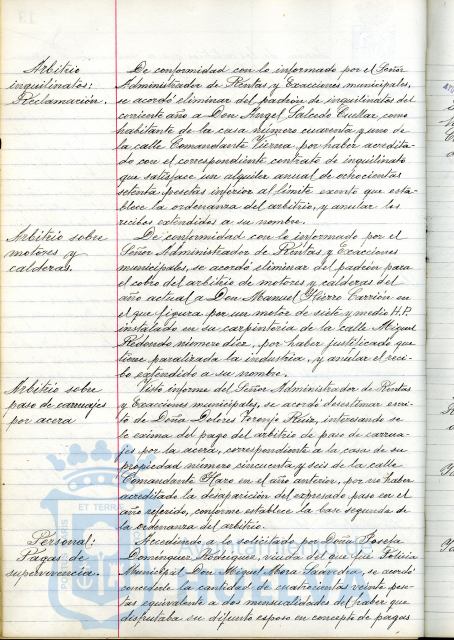 Arbitrio
inquilinatos:
Reclamación.
De conformidad con lo informado por el Señor
Administrador de Rentas y Exacciones municipales,
se acordó eliminar del padrón de inquilinatos del
corriente año a Don Angel Salcedo Cuellar, como
habitante de la casa número cuarenta y uno de
la calle Comandante Vierna, por haber acredita-
do con el correspondiente contrato de inquilinato
que satisface un alquiler anual de ochocientas
setenta pesetas inferior al límite exento que esta-
blece la ordenanza del arbitrio, y anular los
recibos extendidos a su nombre.
Arbitrio sobre
motores y
calderas.
De conformidad con lo informado por el
Señor Administrador de Rentas y Exacciones
municipales, se acordó eliminar del padrón para
el cobro del arbitrio de motores y calderas del
año actual a Don Manuel Hierro Carrión en
el que figura por un motor de siete y medio H.P.
instalado en su carpintería de la calle Miguel
Redondo número diez, por haber justificado que
tiene paralizada la industria, y anular el reci-
bo extendido a su nombre.
Arbitrio sobre
paso de carruajes
por acera
Visto informe del Señor Administrador de Rentas
y Exacciones municipales, se acordó desestimar escri-
to de Doña Dolores Toronjo Ruiz, interesando se
le exima del pago del arbitrio de paso de carrua-
jes por la acera, correspondiente a la casa de su
propiedad número cincuenta y seis de la calle
Comandante Haro en el año anterior, por no haber
acreditado la desaparición del expresado paso en el
año referido, conforme establece la base segunda de
la ordenanza del arbitrio.
Personal:
Pagas de
supervivencia.
Accediendo a lo solicitado por Doña Josefa
Domínguez Rodríguez, viuda del que fué Policía
Municipal Don Miguel Mora Saavedra, se acordó
concederle la cantidad de cuatrocientas veinte pese-
tas equivalente a dos mensualidades del haber que
disfrutaba su difunto esposo en concepto de pagas
ET TERR